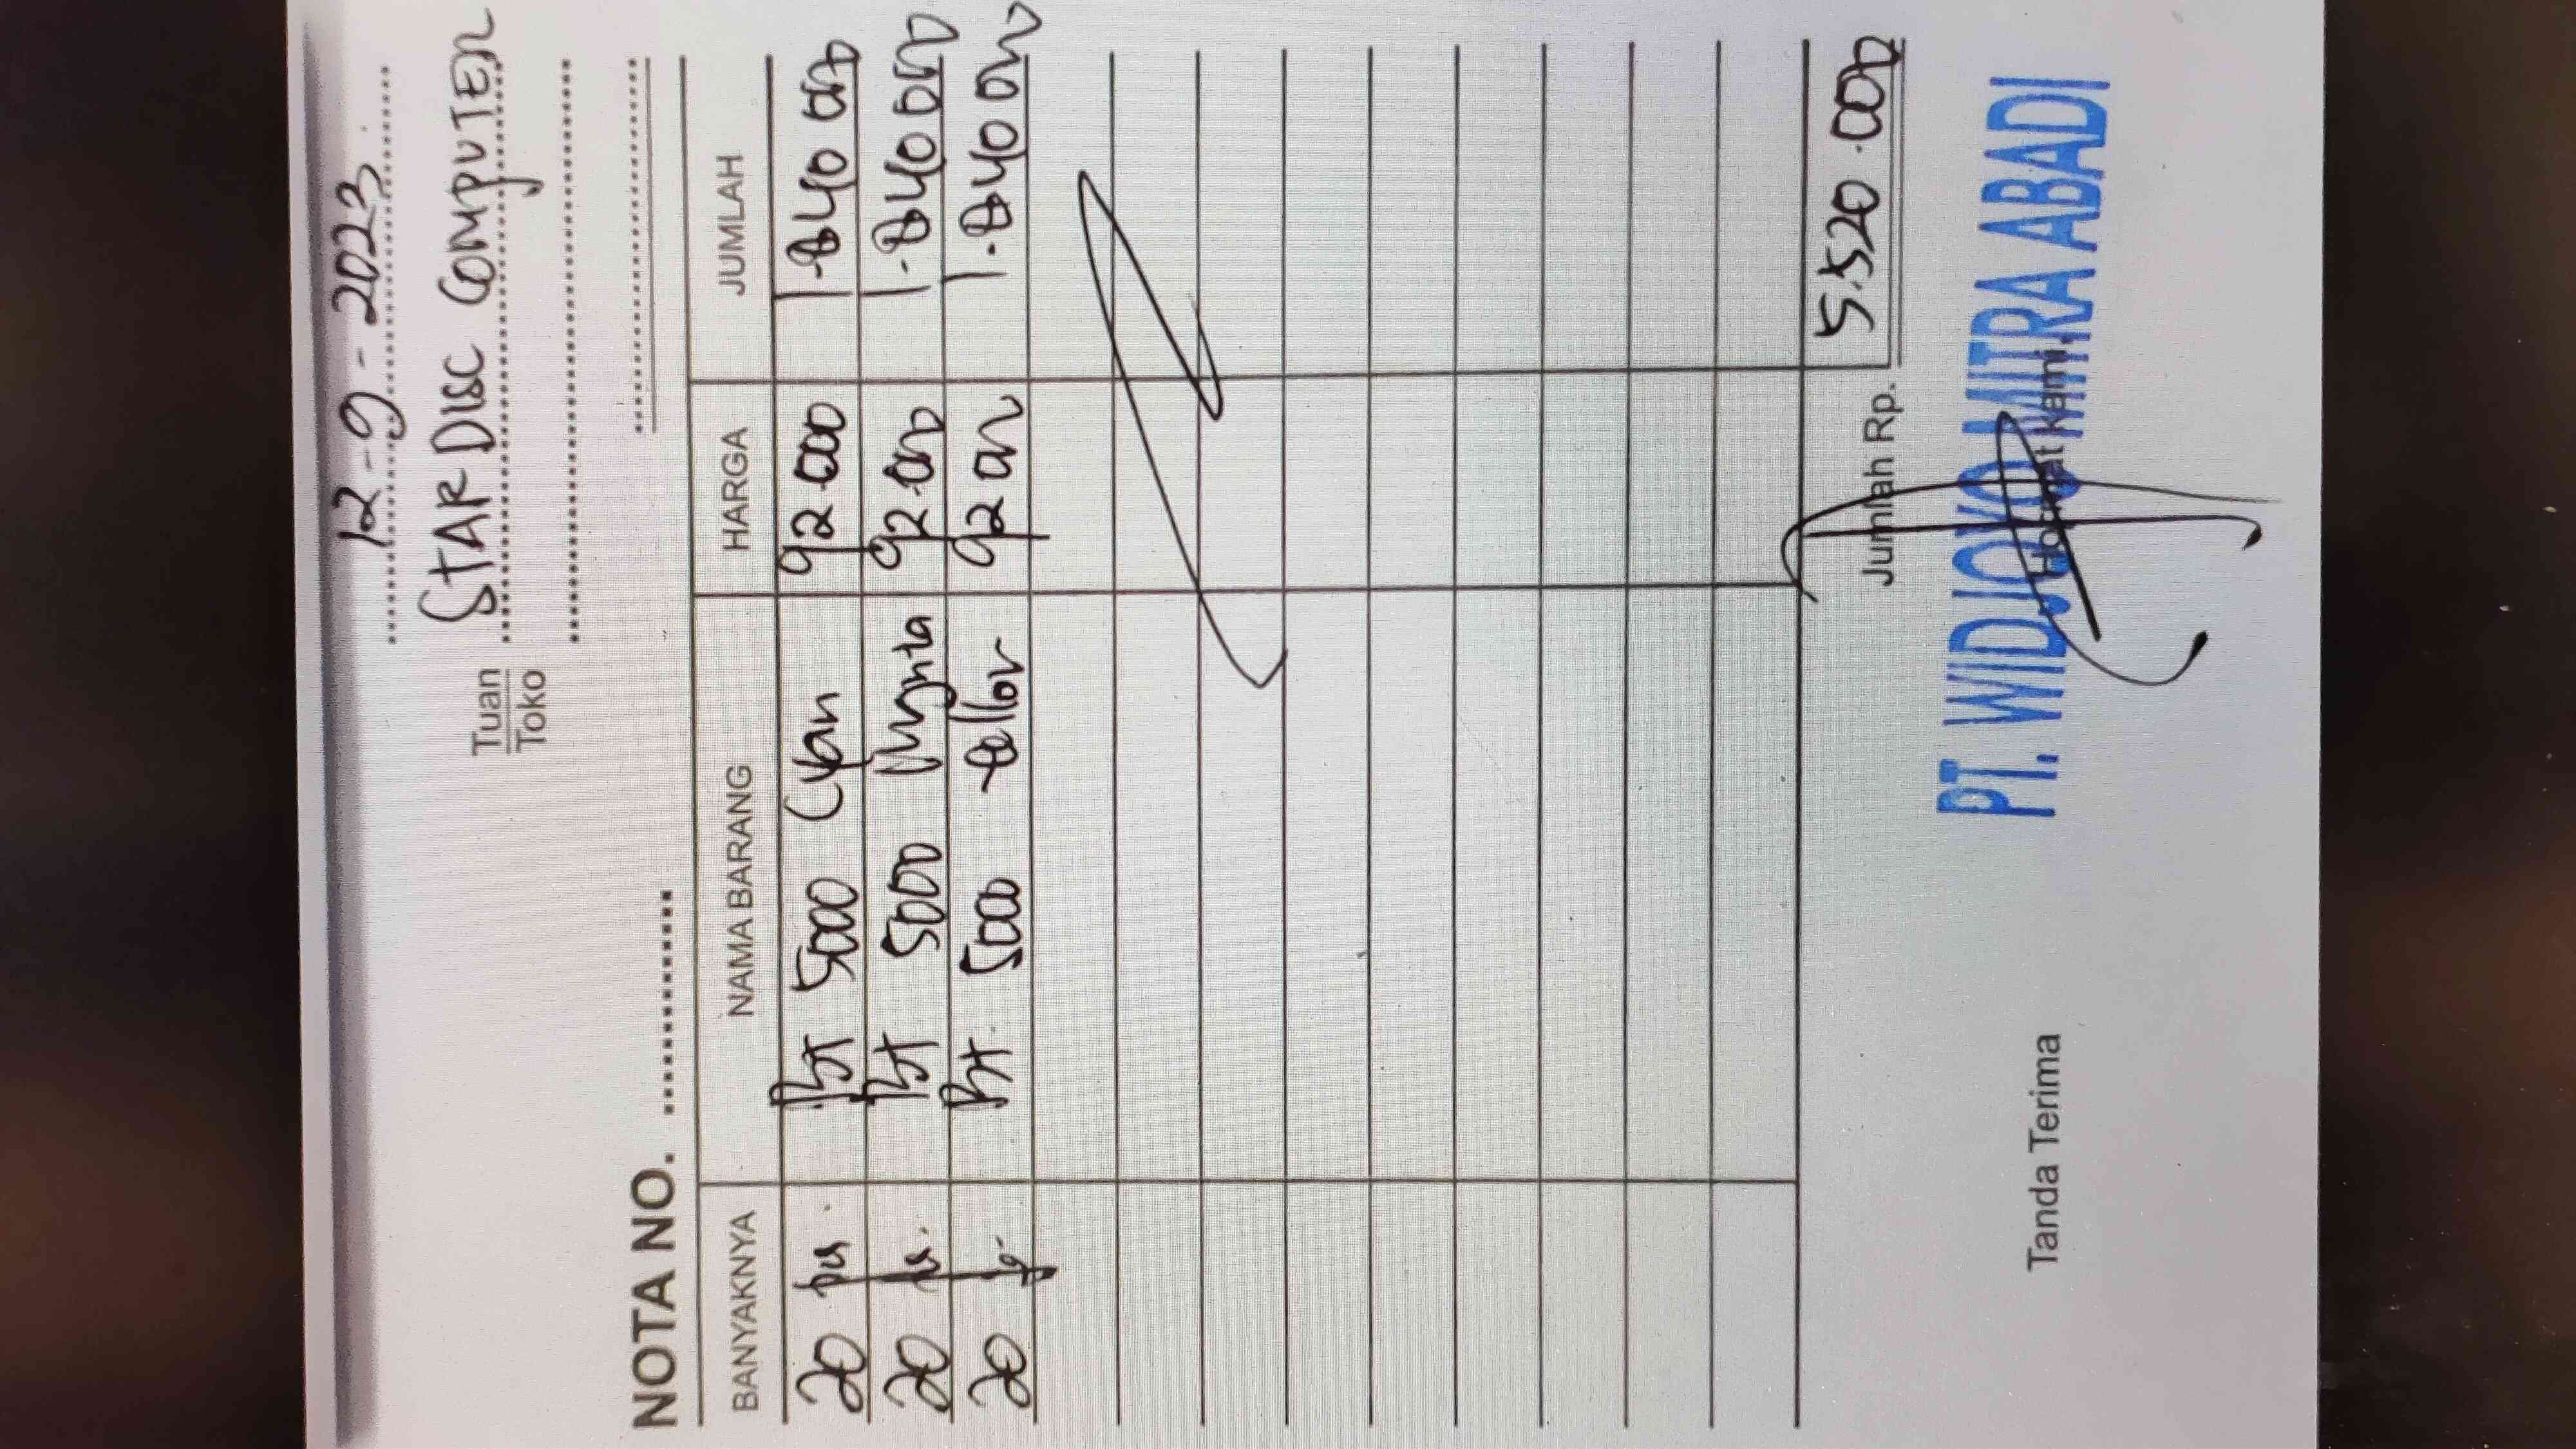 12-9-2023
Tuan
Toko
STAR DISC COMPUTER
NOTA NO.
BANYAKNYA NAMA BARANG HARGA JUMLAH
20 5000 Cyan 92.000 1.840.000
20 5000 92.000 1.840.000
20 5000 92.000 1.840.000
Jumlah Rp. 5.520.000
PT. WIDJOYO MITRA ABADI
Tanda Terima Hormat kami,